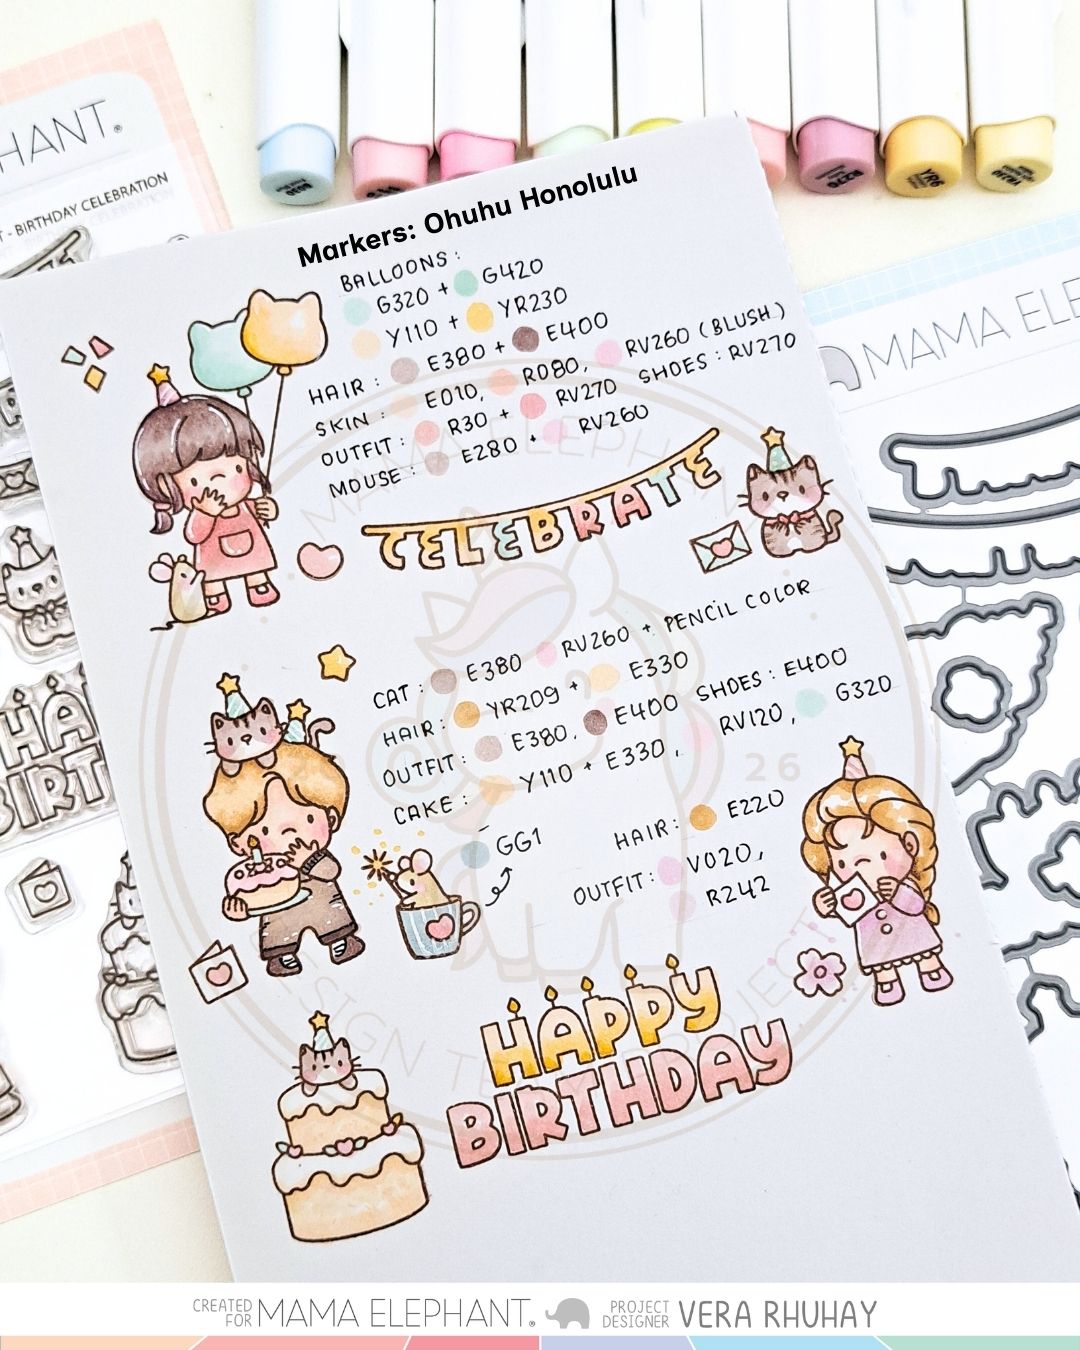 HANT.
T - BIRTHDAY CELEBRATION
MAMA ELE
YR6
Markers: Ohuhu Honolulu
BALLOONS:
G320 + G420
Y110 + YR230
HAIR: E380 + E400
SKIN: E010, R080, RV260 (BLUSH)
OUTFIT: R30 + RV270 SHOES: RV270
MOUSE: E280 + RV260
CELEBRATE
CAT: E380 RV260 + PENCIL COLOR
HAIR: YR209 + E330
OUTFIT: E380, E400 SHOES: E400
CAKE: Y110 + E330, RV120, G320
GG1
HAIR: E220
OUTFIT: V020,
R242
HAPPY
BIRTHDAY
HA
BIRT
MAMA ELEPHANT
DESIGN TEAM PROJECT
26
CREATED FOR MAMA ELEPHANT. PROJECT DESIGNER VERA RHUHAY